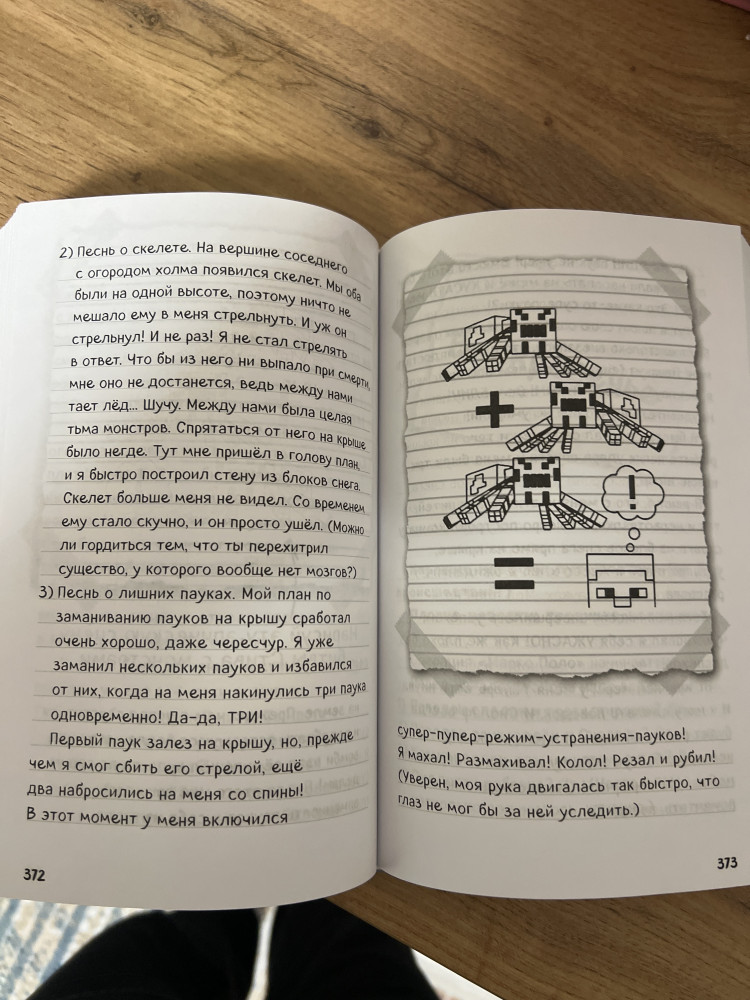 2) Песнь о скелете. На вершине соседнего
с огородом холма появился скелет. Мы оба
были на одной высоте, поэтому ничто не
мешало ему в меня стрельнуть. И уж он
стрельнул! И не раз! Я не стал стрелять
в ответ. Что бы из него ни выпало при смерти,
мне оно не достанется, ведь между нами
тает лёд... Шучу. Между нами была целая
тьма монстров. Спрятаться от него на крыше
было негде. Тут мне пришёл в голову план,
и я быстро построил стену из блоков снега.
Скелет больше меня не видел. Со временем
ему стало скучно, и он просто ушёл. (Можно
ли гордиться тем, что ты перехитрил
существо, у которого вообще нет мозгов?)
3) Песнь о лишних пауках. Мой план по
заманиванию пауков на крышу сработал
очень хорошо, даже чересчур. Я уже
заманил нескольких пауков и избавился
от них, когда на меня накинулись три паука
одновременно! Да-да, ТРИ!
Первый паук залез на крышу, но, прежде
чем я смог сбить его стрелой, ещё
два набросились на меня со спины!
В этот момент у меня включился
372
+
!
=
супер-пупер-режим-устранения-пауков!
Я махал! Размахивал! Колол! Резал и рубил!
(Уверен, моя рука двигалась так быстро, что
глаз не мог бы за ней уследить.)
373